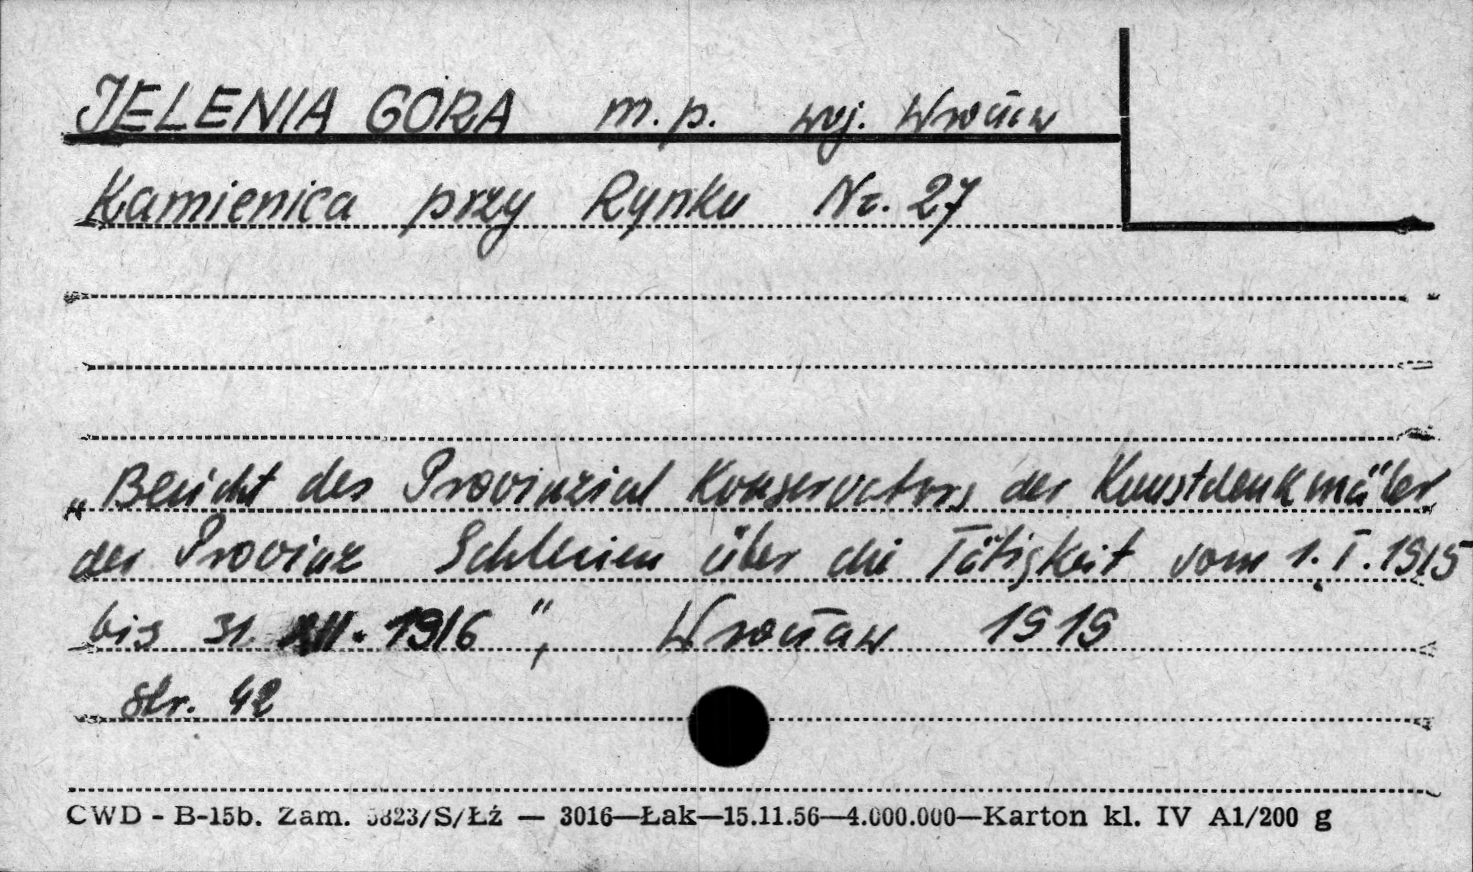 JELENIA GÓRA m.p. woj. Wrocław
Kamienica przy Rynku Nr. 27
„Bericht des Provinzial Konservators der Kunstdenkmäler
der Provinz Schlesien über die Tätigkeit vom 1.I.1915
bis 31. XII. 1916", Wrocław 1919
Str. 42
CWD - B-15b. Zam. 5823/S/Łź — 3016—Łak—15.11.56—4.000.000—Karton kl. IV A1/200 g